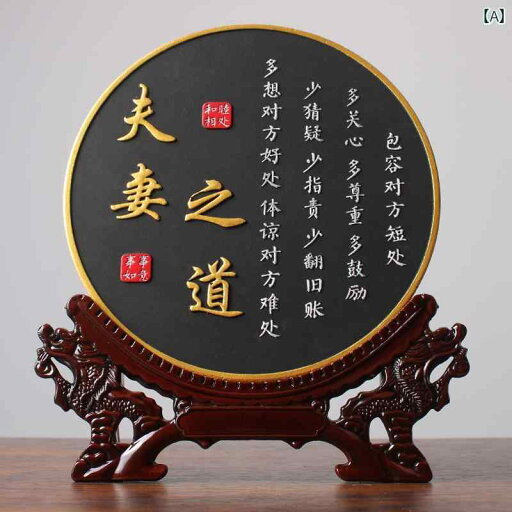 【A】
夫妻
之道
和睦
相处
事事
如意
多想对方好处 体谅对方难处
少猜疑 少指责 少翻旧账
多关心 多尊重 多鼓励
包容对方短处